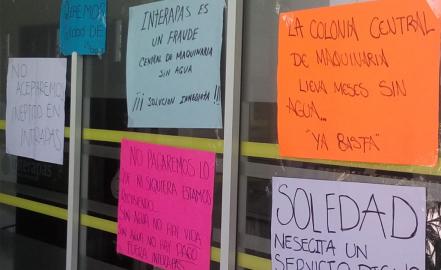 QUEREMOS
INTERAPAS ES
UN FRAUDE
CENTRAL DE MAQUINARIA
SIN AGUA
¡¡¡ SOLUCION INMEDIATA !!!
LA COLONIA CENTRAL
DE MAQUINARIA
LLEVA MESES SIN
AGUA...
"YA BASTA"
NO
ACEPTAREMOS
INEPTITUD EN
INTRAPAS
NO PAGAREMOS LO
QUE NI SIQUIERA ESTAMOS
RECIBIENDO
SIN AGUA NO HAY VIDA
SIN AGUA NO HAY PAGO
FUERA INTERAPAS
SOLEDAD
NESECITA UN
SERVICIO